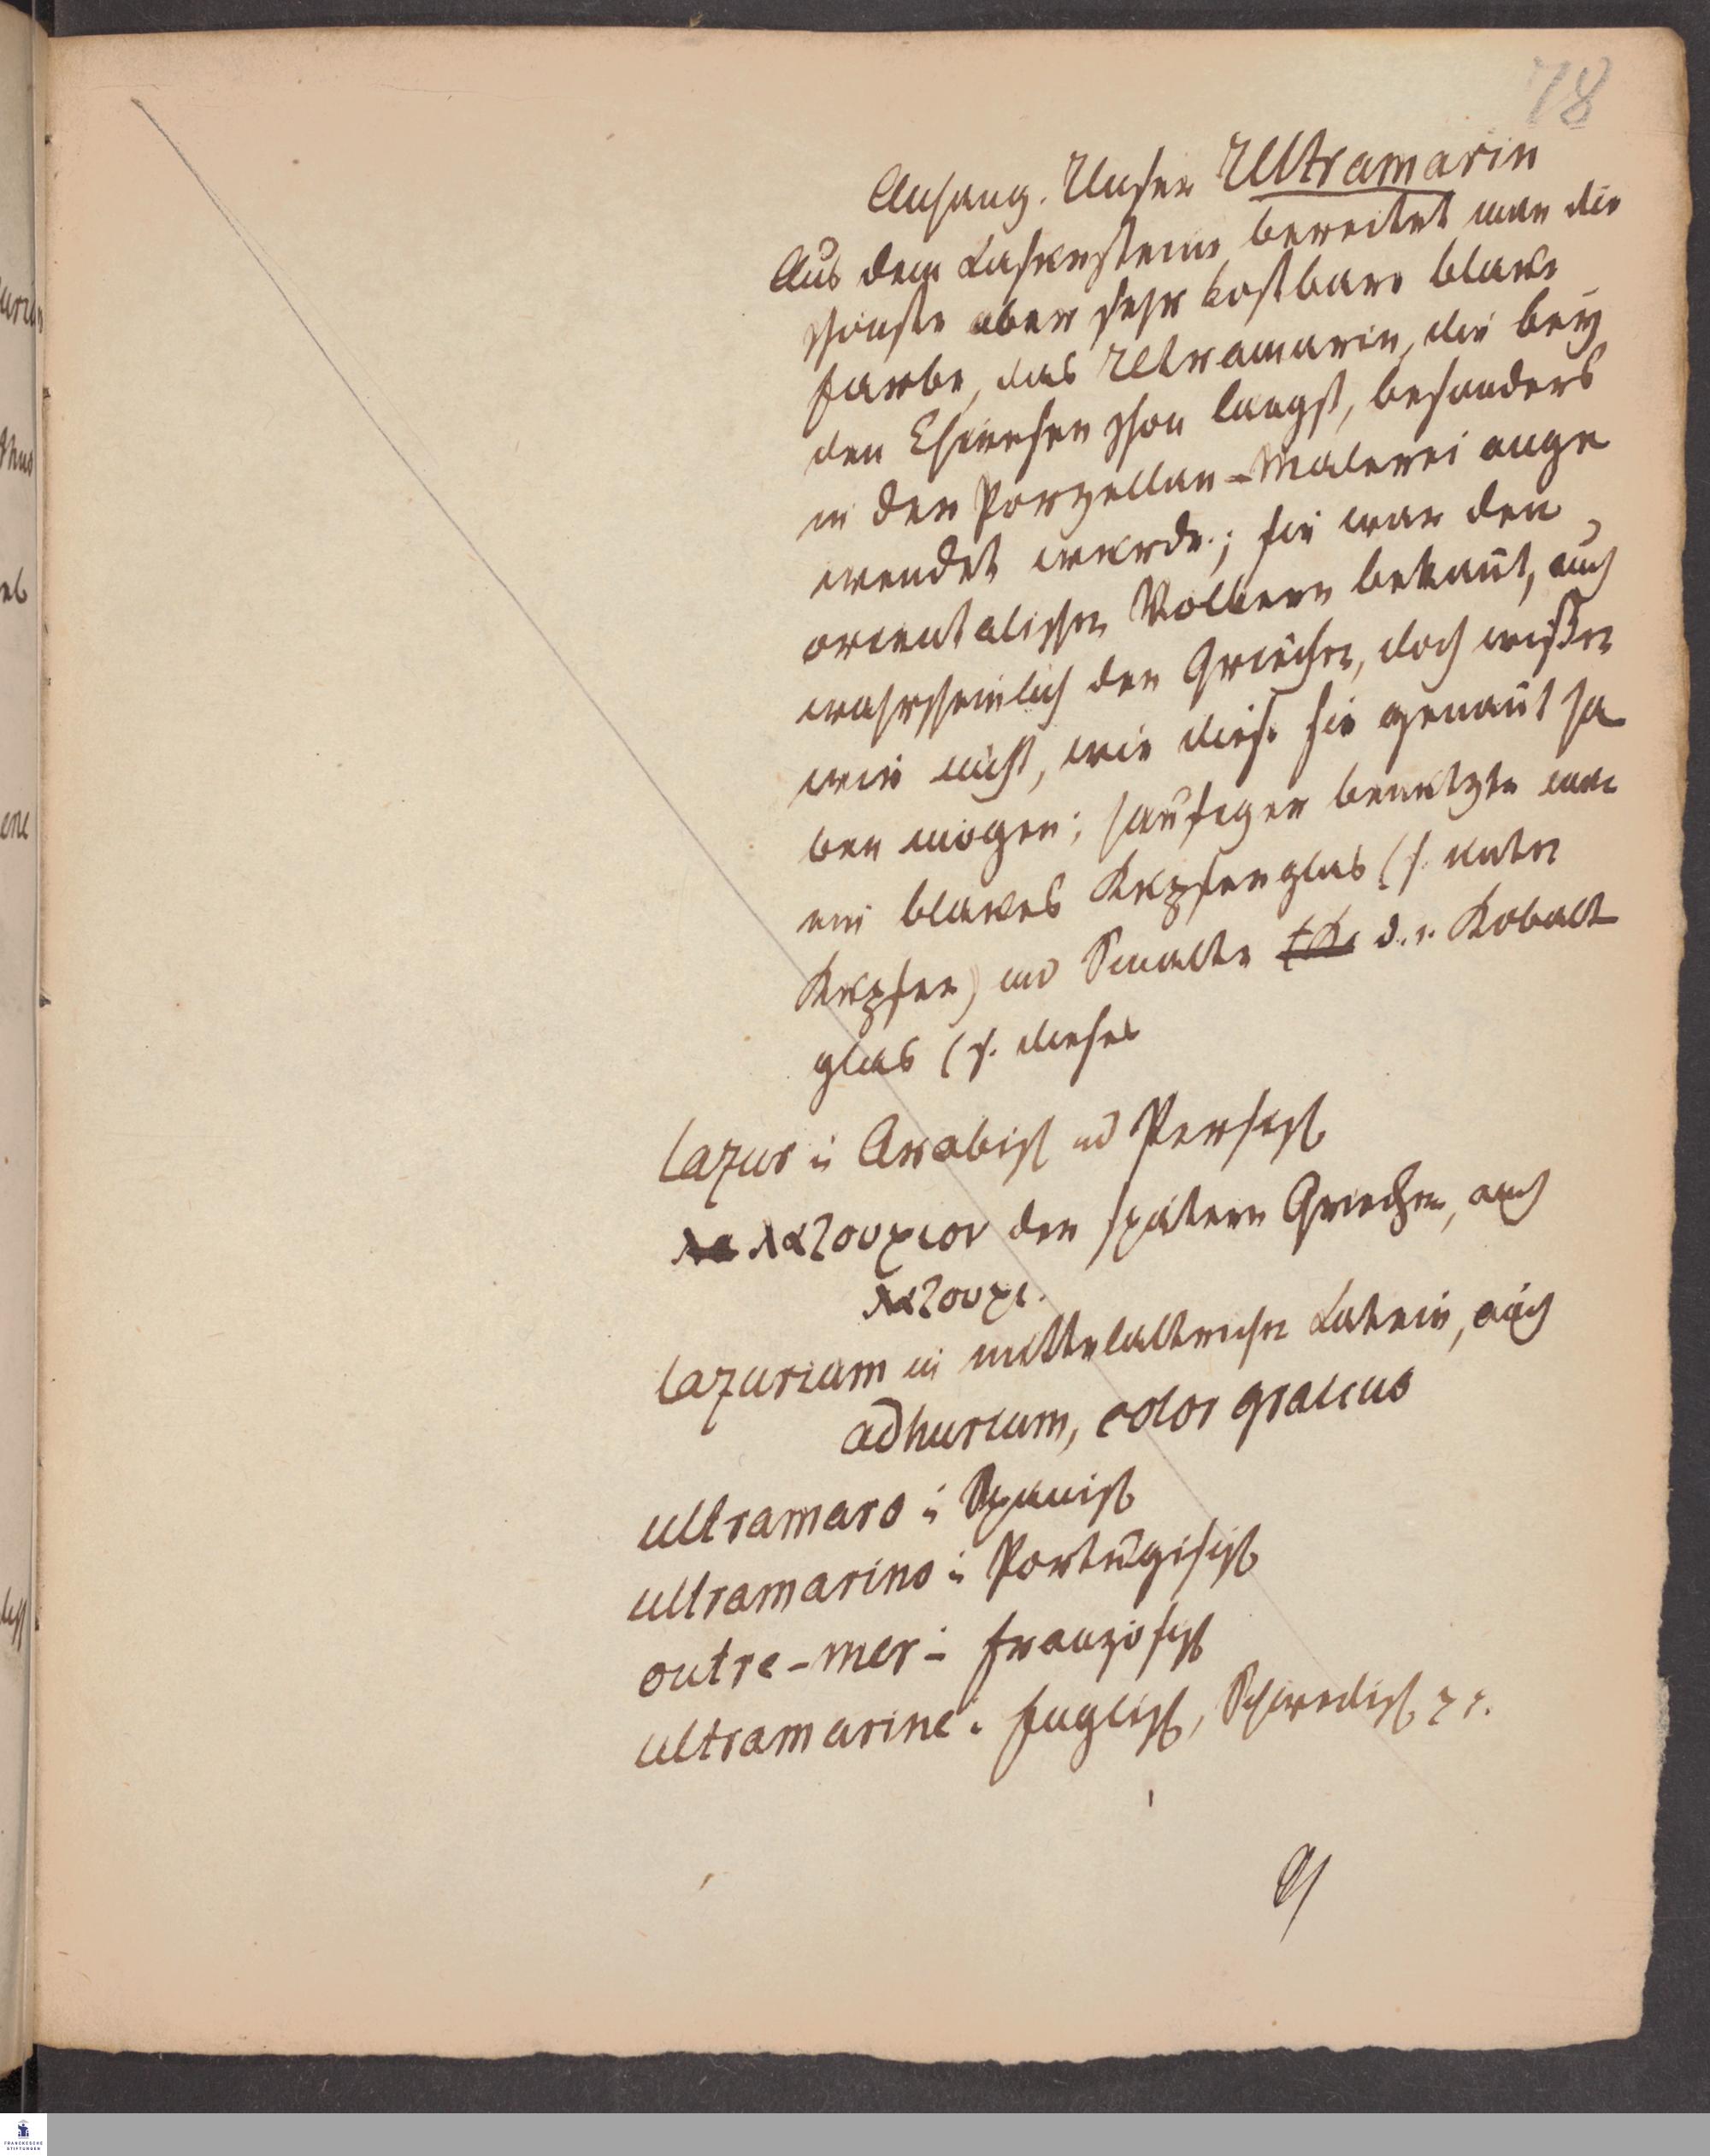 78
Anhang. Unser Ultramarin
Aus dem Lasursteine bereitet man die
schönste aber sehr kostbare blaue
Farbe, das Ultramarin, die bey
den Chinesen schon langst, besonders
in der Porzellan-Malerei ange
wendet wurde; sie war den
orientalischen Völkern bekannt, auch
wahrscheinlich den Griechen, doch wißen
wir nicht, wie diese sie genannt ha
ben mögen; häufiger benutzte man
ein blaues Kupferglas (s. unter
Kupfer) und Smalte d. i. Kobalt
glas (s. dieses
lazur i Arabisch und Persisch
λαζουριον der spätern Griechen, auch
λαζουρι.
lazurium in mittelalterischen Latein, auch
adhurium, color graecus
ultramaro i Spanisch
ultramarino i Portugisisch
outre-mer i französisch
ultramarine i Englisch, Schwedisch
FRANCKESCHE
STIFTUNGEN